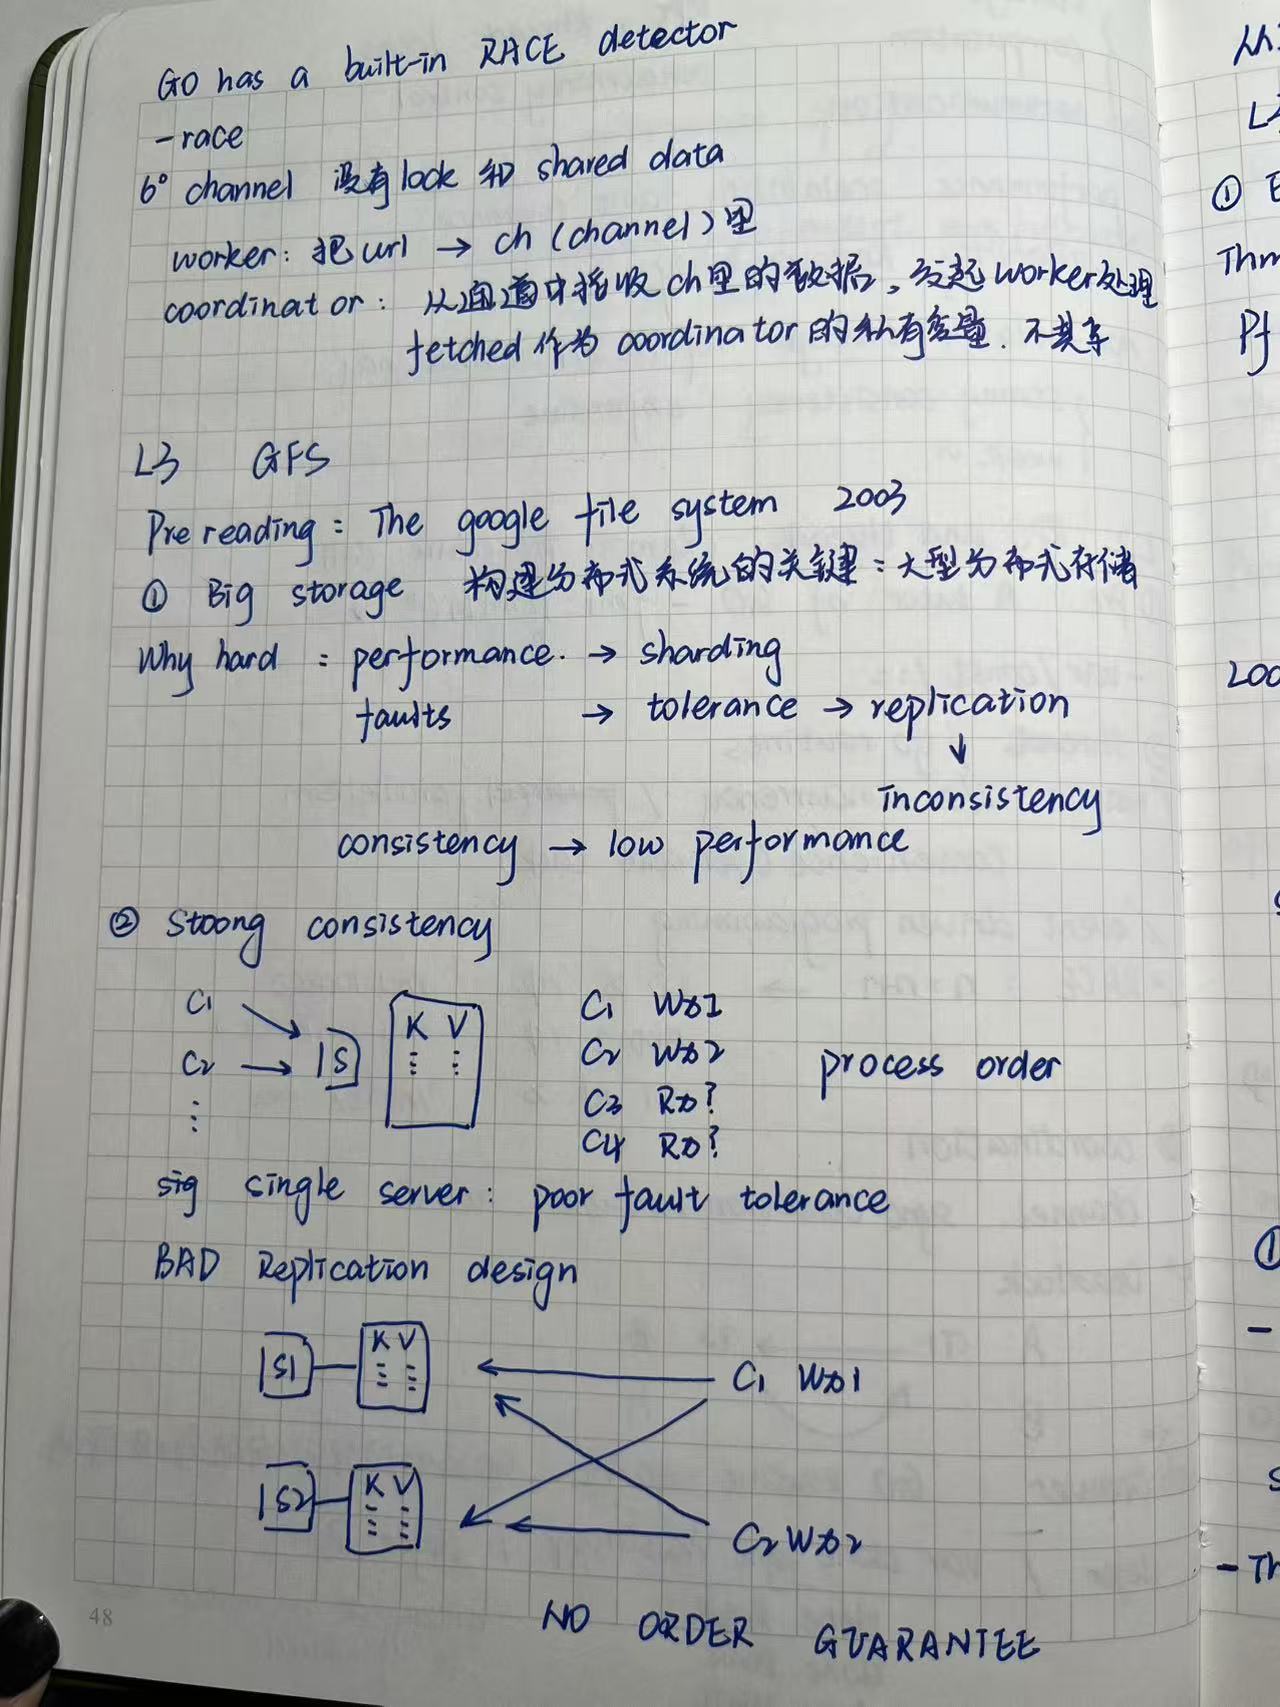 GO has a built-in RACE detector
-race
6° channel 没有lock 和 shared data
worker: 把url → ch (channel) 里
coordinator: 从通道中接收ch里的数据, 发起worker处理
fetched 作为 coordinator 的私有变量. 不共享
L3 GFS
Pre reading: The google file system 2003
① Big storage 构建分布式系统的关键: 大型分布式存储
Why hard: performance. → sharding
faults → tolerance → replication
↓
inconsistency
consistency → low performance
② Stoong consistency
C1
C2
⋮
S
K V
C1 Wx1
C2 Wx2
C3 Rx?
C4 Rx?
process order
sig single server: poor fault tolerance
BAD Replication design
S1
K V
C1 Wx1
S2
K V
C2 Wx2
NO ORDER GUARANTEE
48
从
L
① E
Thm
Pf
①
-
- Th